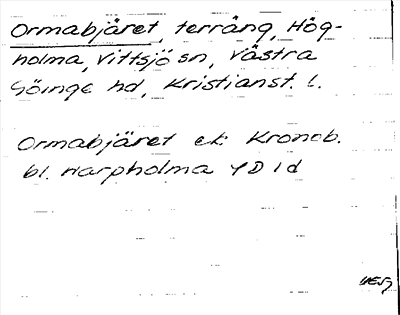 Ormabjäret, terräng, Hög-
holma, Vittsjö sn, Västra
Göinge hd, Kristianst. l.
Ormabjäret ek. Kronob.
bl. Harpholma 4D1d